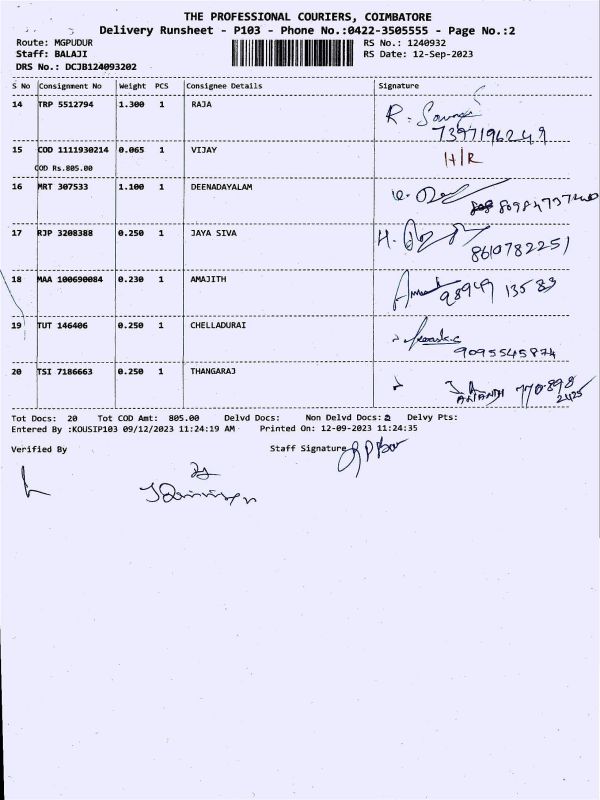 THE PROFESSIONAL COURIERS, COIMBATORE
Delivery Runsheet - P103 - Phone No.:0422-3505555 - Page No.:2
Route: MGPUDUR RS No.: 1240932
Staff: BALAJI RS Date: 12-Sep-2023
DRS No.: DCJB124093202
S No Consignment No Weight PCS Consignee Details Signature
14 TRP 5512794 1.300 1 RAJA
R.
7397196249
15 COD 1111930214 0.065 1 VIJAY
H/R
COD Rs.805.00
16 MRT 307533 1.100 1 DEENADAYALAM
17 RJP 3208388 0.250 1 JAYA SIVA
H.
8610782251
18 MAA 100690084 0.230 1 AMAJITH
98949 13583
19 TUT 146406 0.250 1 CHELLADURAI
9095545874
20 TSI 7186663 0.250 1 THANGARAJ
ANANDH 770898
2425
Tot Docs: 20 Tot COD Amt: 805.00 Delvd Docs: Non Delvd Docs: 2 Delvy Pts:
Entered By :KOUSIP103 09/12/2023 11:24:19 AM Printed On: 12-09-2023 11:24:35
Verified By Staff Signature